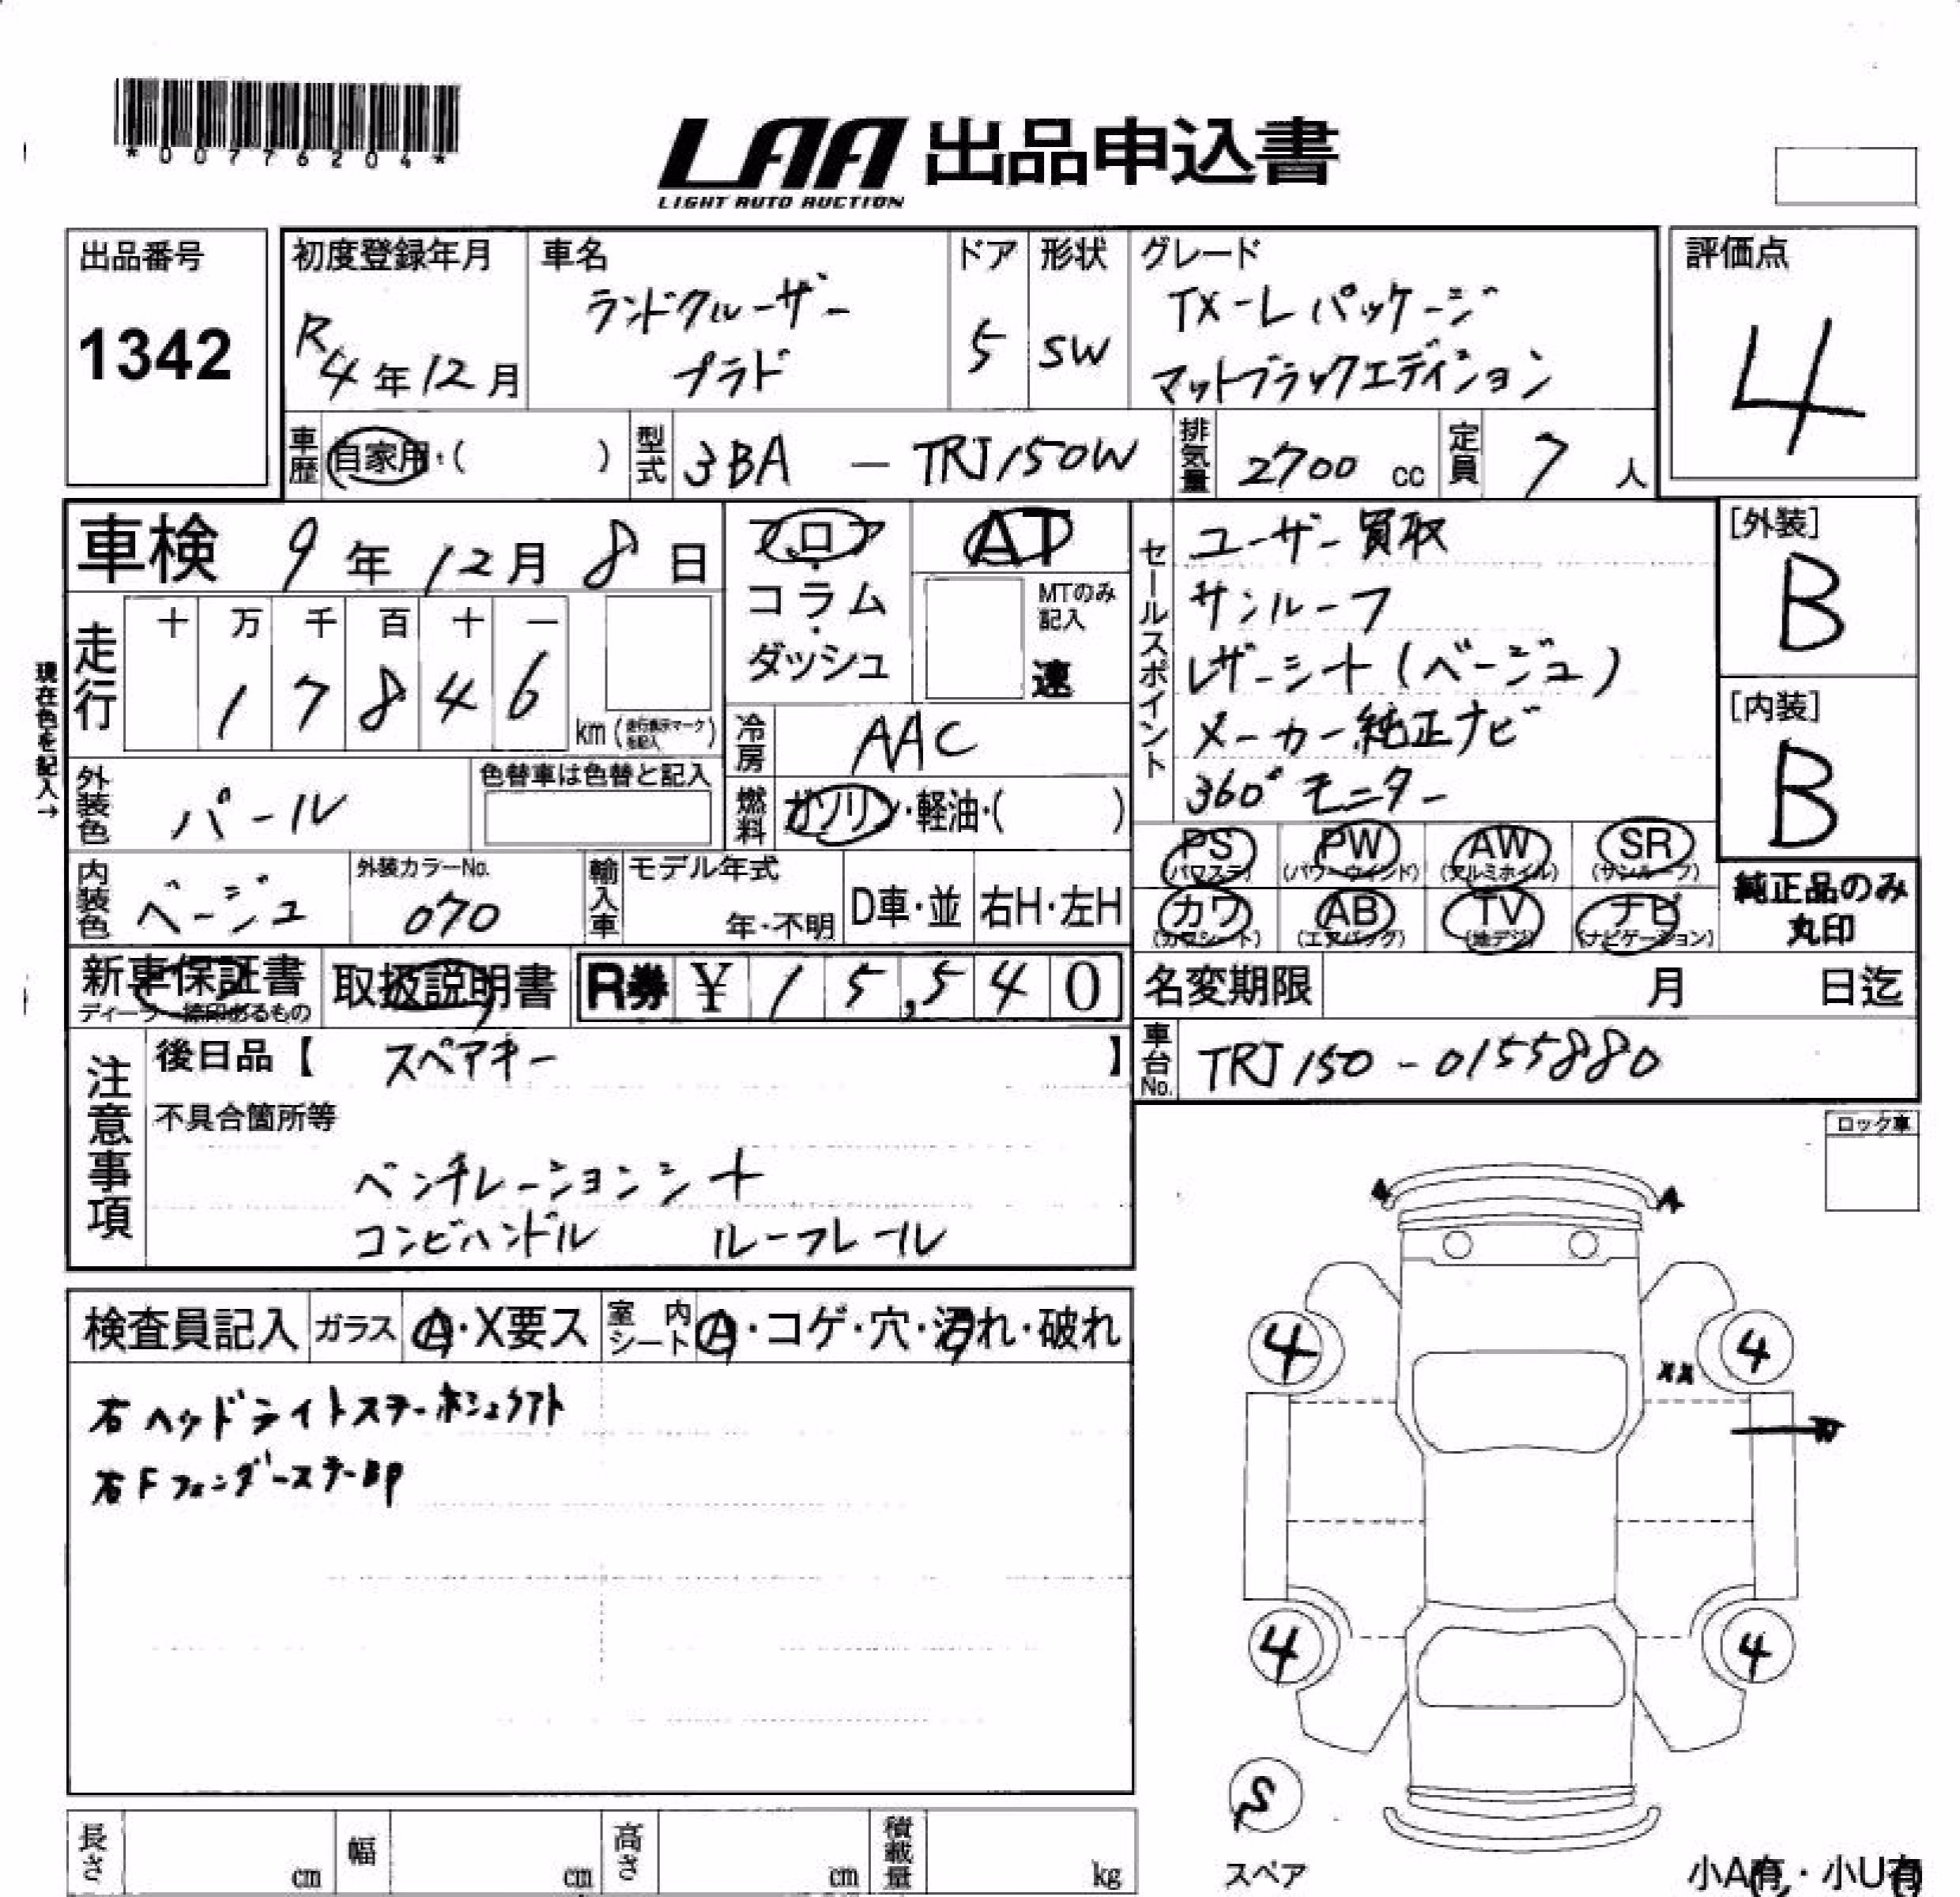 *00776204*
LAA 出品申込書
LIGHT AUTO AUCTION
出品番号
1342
初度登録年月
R4年12月
車名
ランドクルーザー
プラド
ドア
5
形状
SW
グレード
TX-Lパッケージ
マットブラックエディション
評価点
4
車歴
自家用・( )
型式
3BA - TRJ150W
排気量
2700 cc
定員
7 人
車検 9年12月8日
フロア・
コラム・
ダッシュ
AT
MTのみ記入
速
セールスポイント
ユーザー買取
サンルーフ
レザーシート(ベージュ)
メーカー純正ナビ
360°モニター
[外装]
B
[内装]
B
現在色を記入→
走行
十 万 千 百 十 一
1 7 8 4 6
km(走行表示マークを記入)
冷房
AAC
外装色
パール
色替車は色替と記入
燃料
ガソリン・軽油・( )
PS PW AW SR
(パワステ) (パワーウィンド) (アルミホイル) (サンルーフ)
カワ AB TV ナビ
(カワシート) (エアバッグ) (地デジ) (ナビゲーション)
純正品のみ
丸印
内装色
ベージュ
外装カラーNo.
070
輸入車
モデル年式
年・不明
D車・並
右H・左H
新車保証書
取扱説明書
R券 ¥ 15,540
名変期限 月 日迄
車台No.
TRJ150-0155880
注意事項
後日品【 スペアキー 】
不具合箇所等
ベンチレーションシート
コンビハンドル ルーフレール
ロック車
検査員記入
ガラス
A・X要ス
室内シート
A・コゲ・穴・汚れ・破れ
右FフェンダーステーBP
A A
4 4
XX
4 4
S
スペア
長さ cm
幅 cm
高さ cm
積載量 kg
小A有・小U有